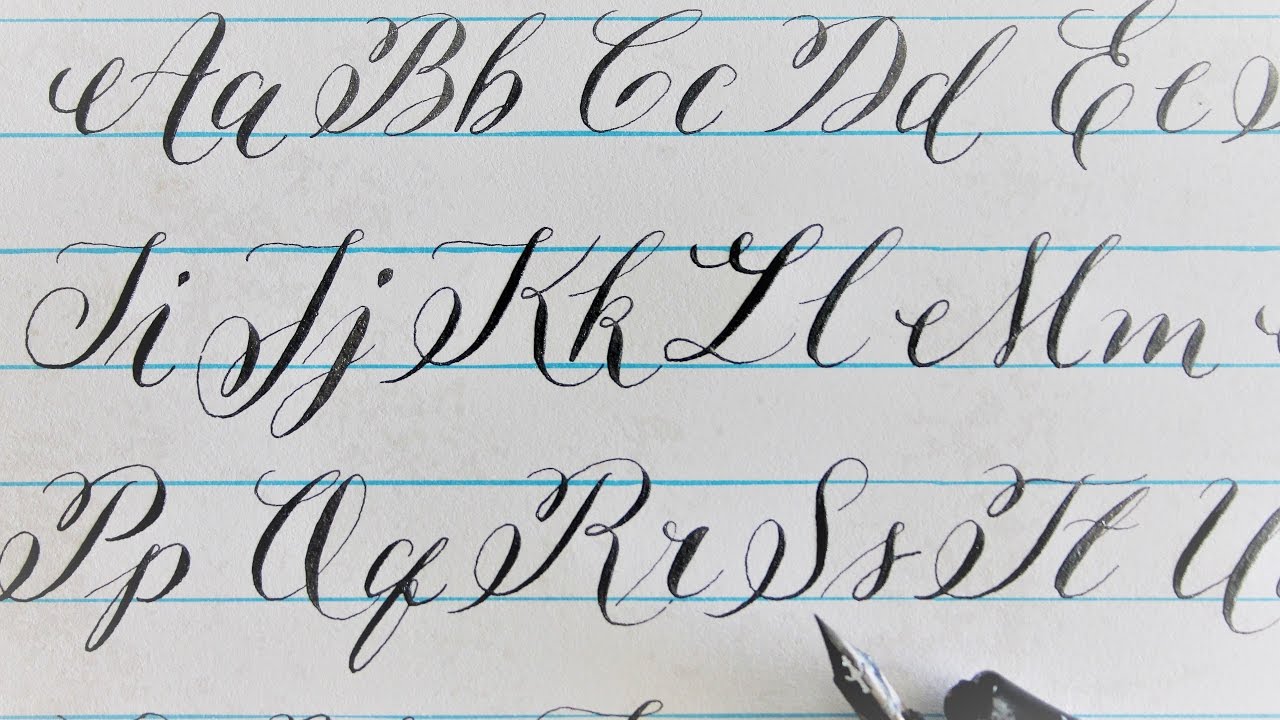 Aa Bb Cc Dd Ee
Ii Jj Kk Ll Mm
Pp Qq Rr Ss Tt U